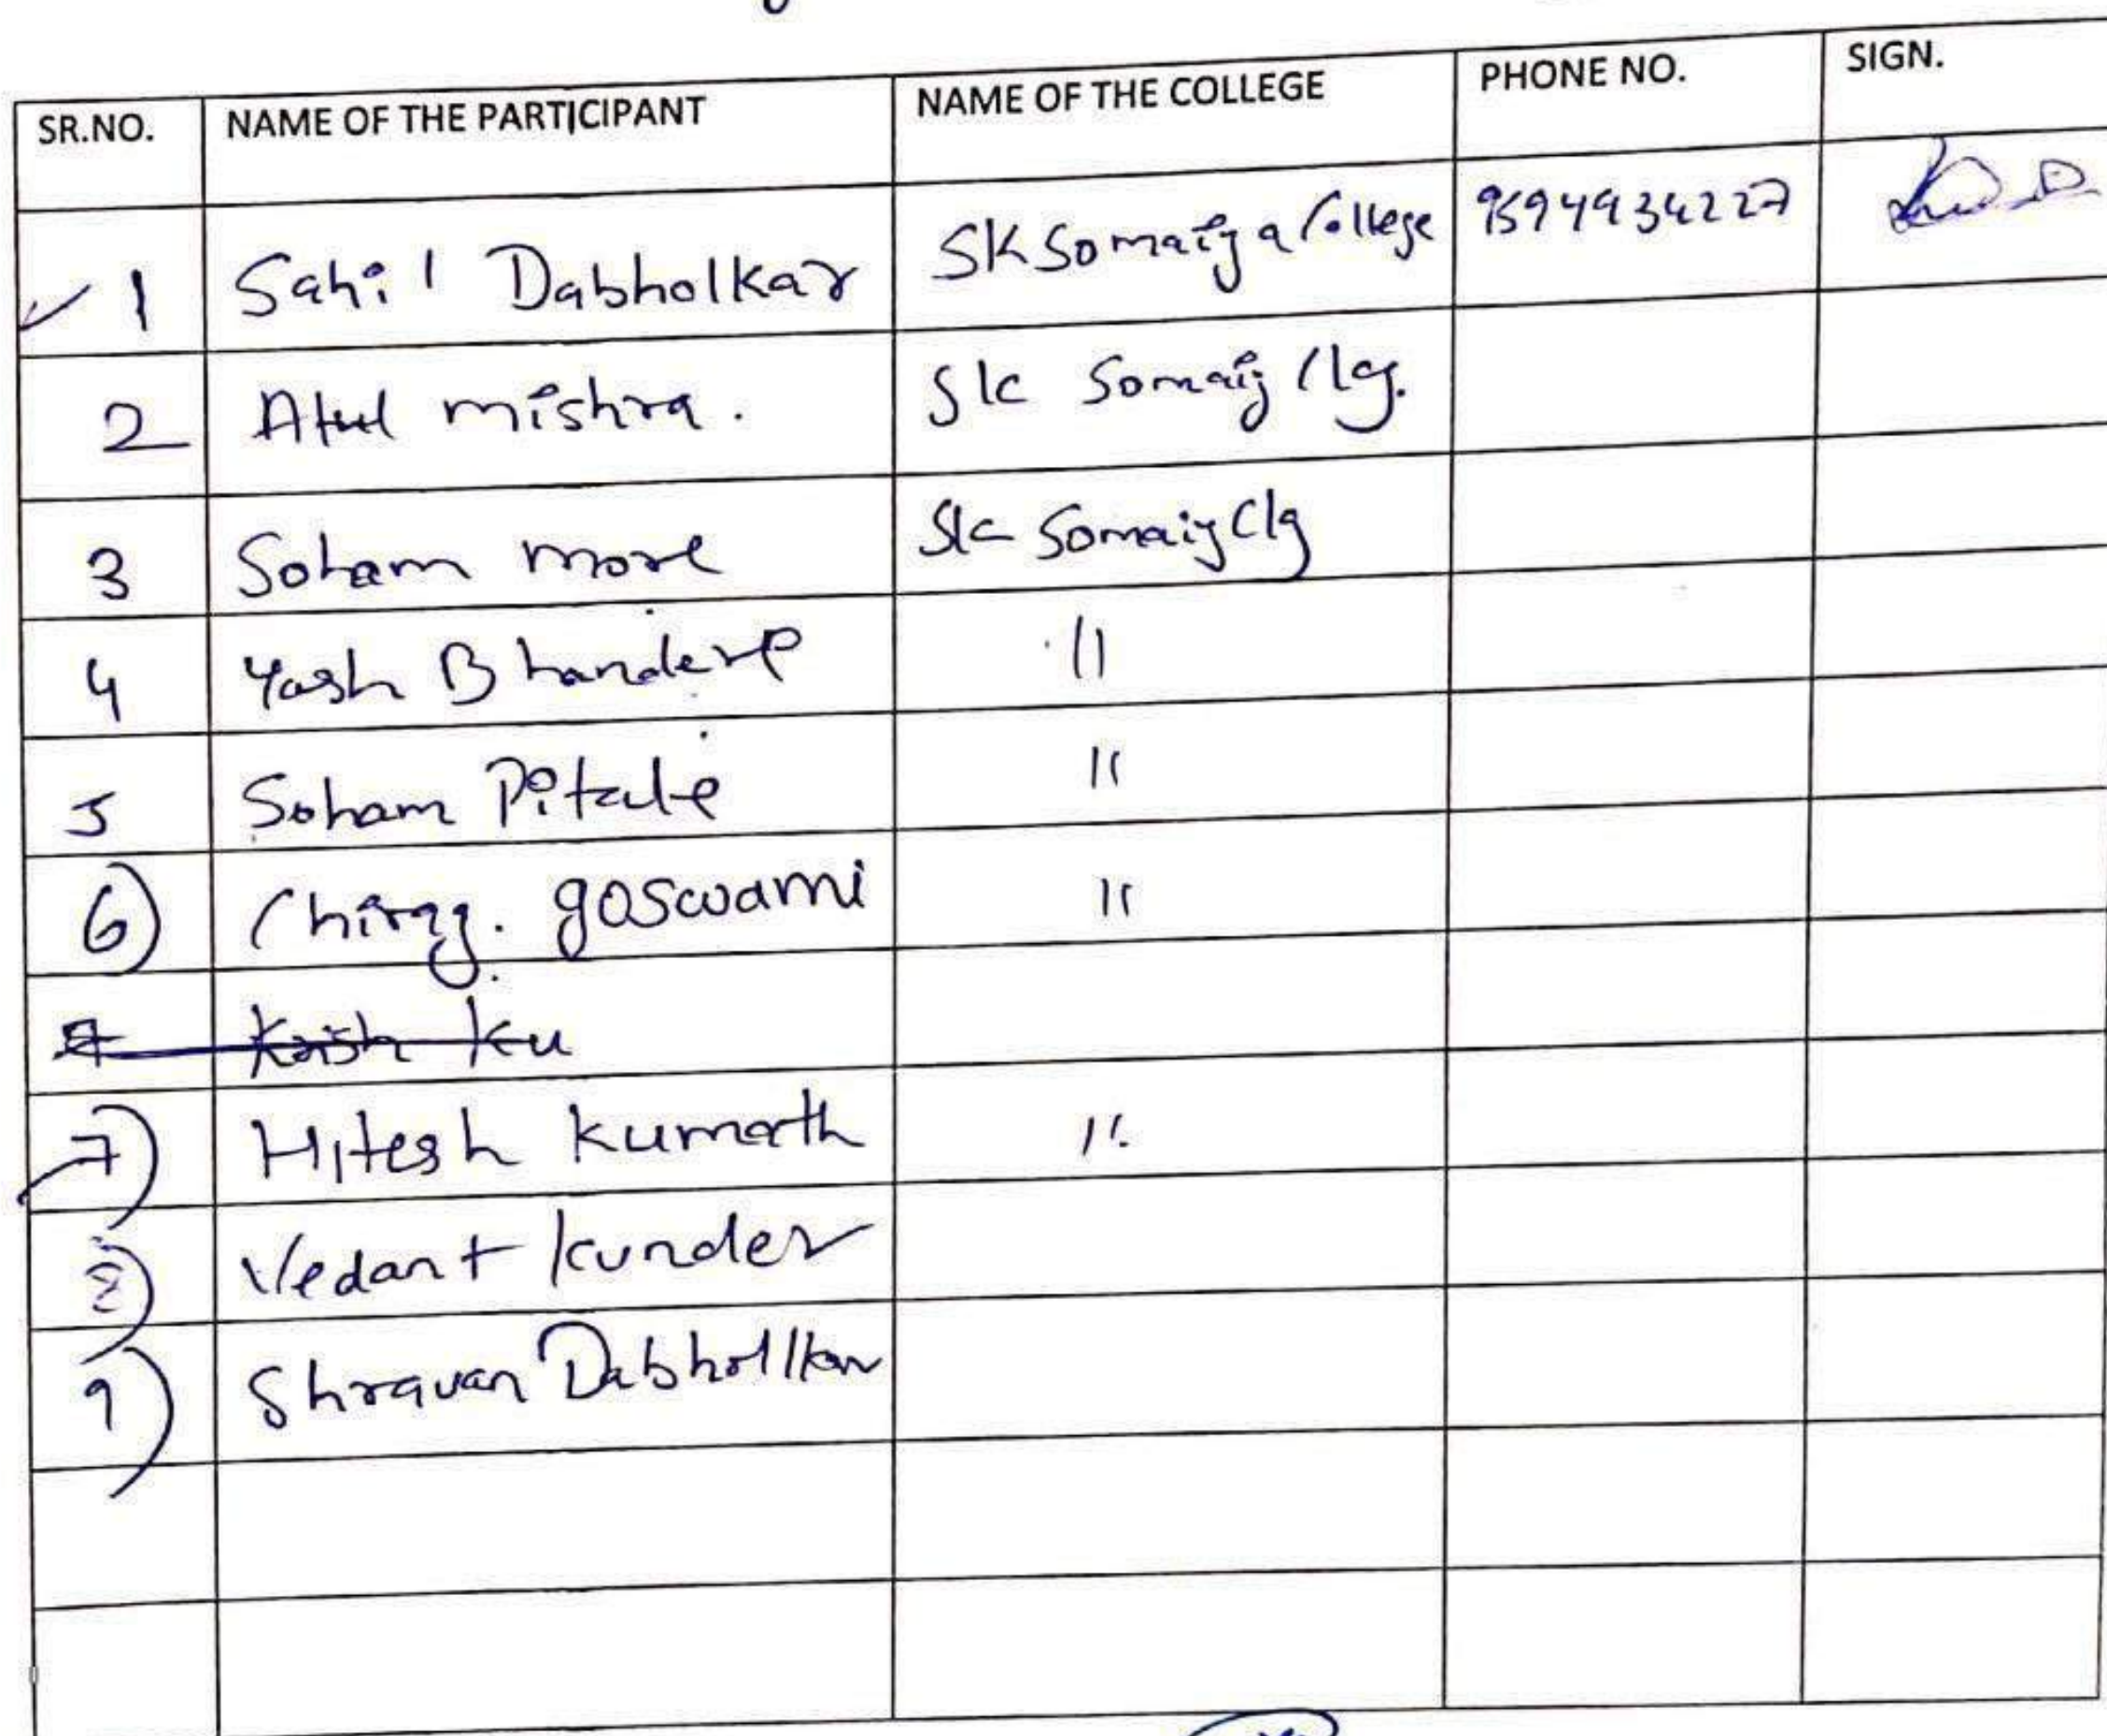 SR.NO. NAME OF THE PARTICIPANT NAME OF THE COLLEGE PHONE NO. SIGN.
1 Sahil Dabholkar SK Somaiya College 9594934227
2 Atul mishra. Sk Somaiy Clg.
3 Soham more Sk Somaiy Clg
4 Yash Bhandere 11
5 Soham Pitale 11
6) Chirag. goswami 11
7 Krish Ku
7) Hitesh Kumarth 11.
8) Vedant Kunder
9) Shravan Dabholkar